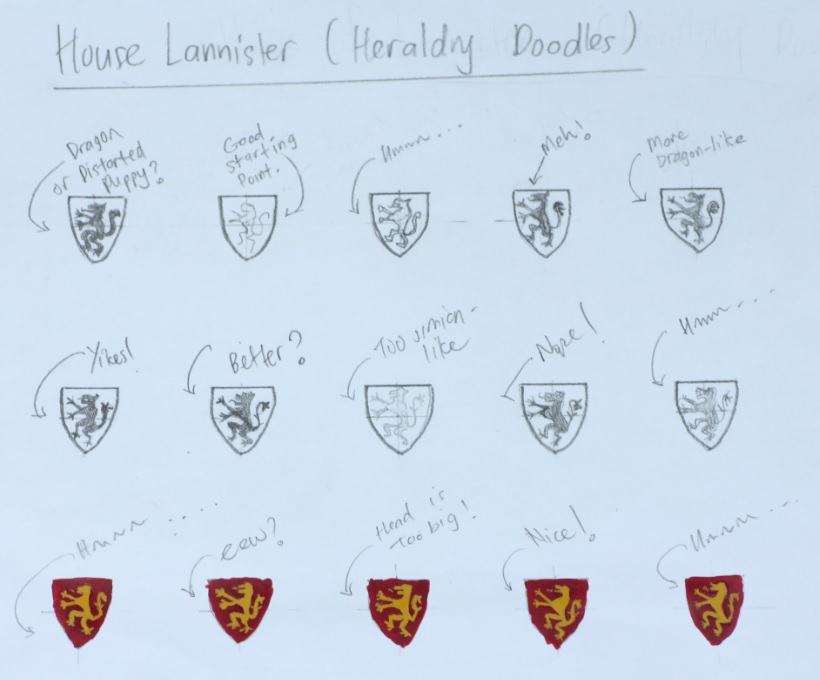 House Lannister (Heraldry Doodles)
Dragon
or Distorted
puppy?
Good
starting
Point.
Hmmm...
Meh!
More
Dragon-like
Yikes!
Better?
Too simian-
like
Nope!
Hmm....
Hmmm ....
eew?
Head is
Too big!
Nice!
Hmmm...